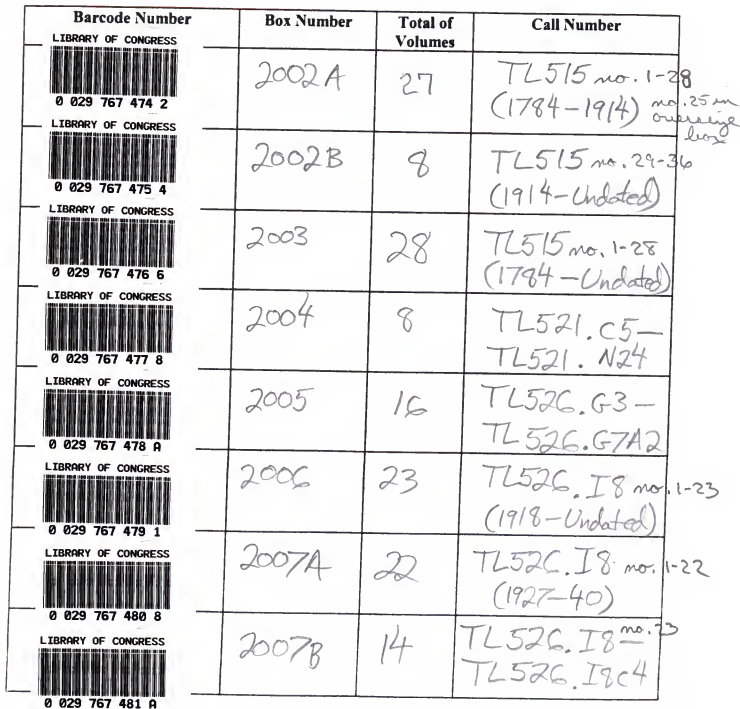 Barcode Number Box Number Total of Volumes Call Number
LIBRARY OF CONGRESS
0 029 767 474 2
2002A 27 TL515 no. 1-28
(1784-1914) no. 25 in
oversize
box
LIBRARY OF CONGRESS
0 029 767 475 4
2002B 8 TL515 no. 29-36
(1914-Undated)
LIBRARY OF CONGRESS
0 029 767 476 6
2003 28 TL515 no. 1-28
(1784-Undated)
LIBRARY OF CONGRESS
0 029 767 477 8
2004 8 TL521.C5-
TL521.N24
LIBRARY OF CONGRESS
0 029 767 478 A
2005 16 TL526.G3-
TL526.G7A2
LIBRARY OF CONGRESS
0 029 767 479 1
2006 23 TL526.I8 no. 1-23
(1918-Undated)
LIBRARY OF CONGRESS
0 029 767 480 8
2007A 22 TL526.I8 no. 1-22
(1927-40)
LIBRARY OF CONGRESS
0 029 767 481 A
2007B 14 TL526.I8 no. 23-
TL526.I8c4